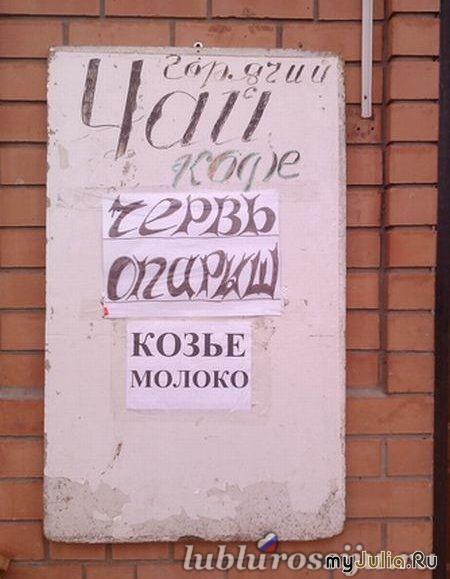 горячий
Чай
кофе
червь
опарыш
КОЗЬЕ
МОЛОКО
myJulia.Ru